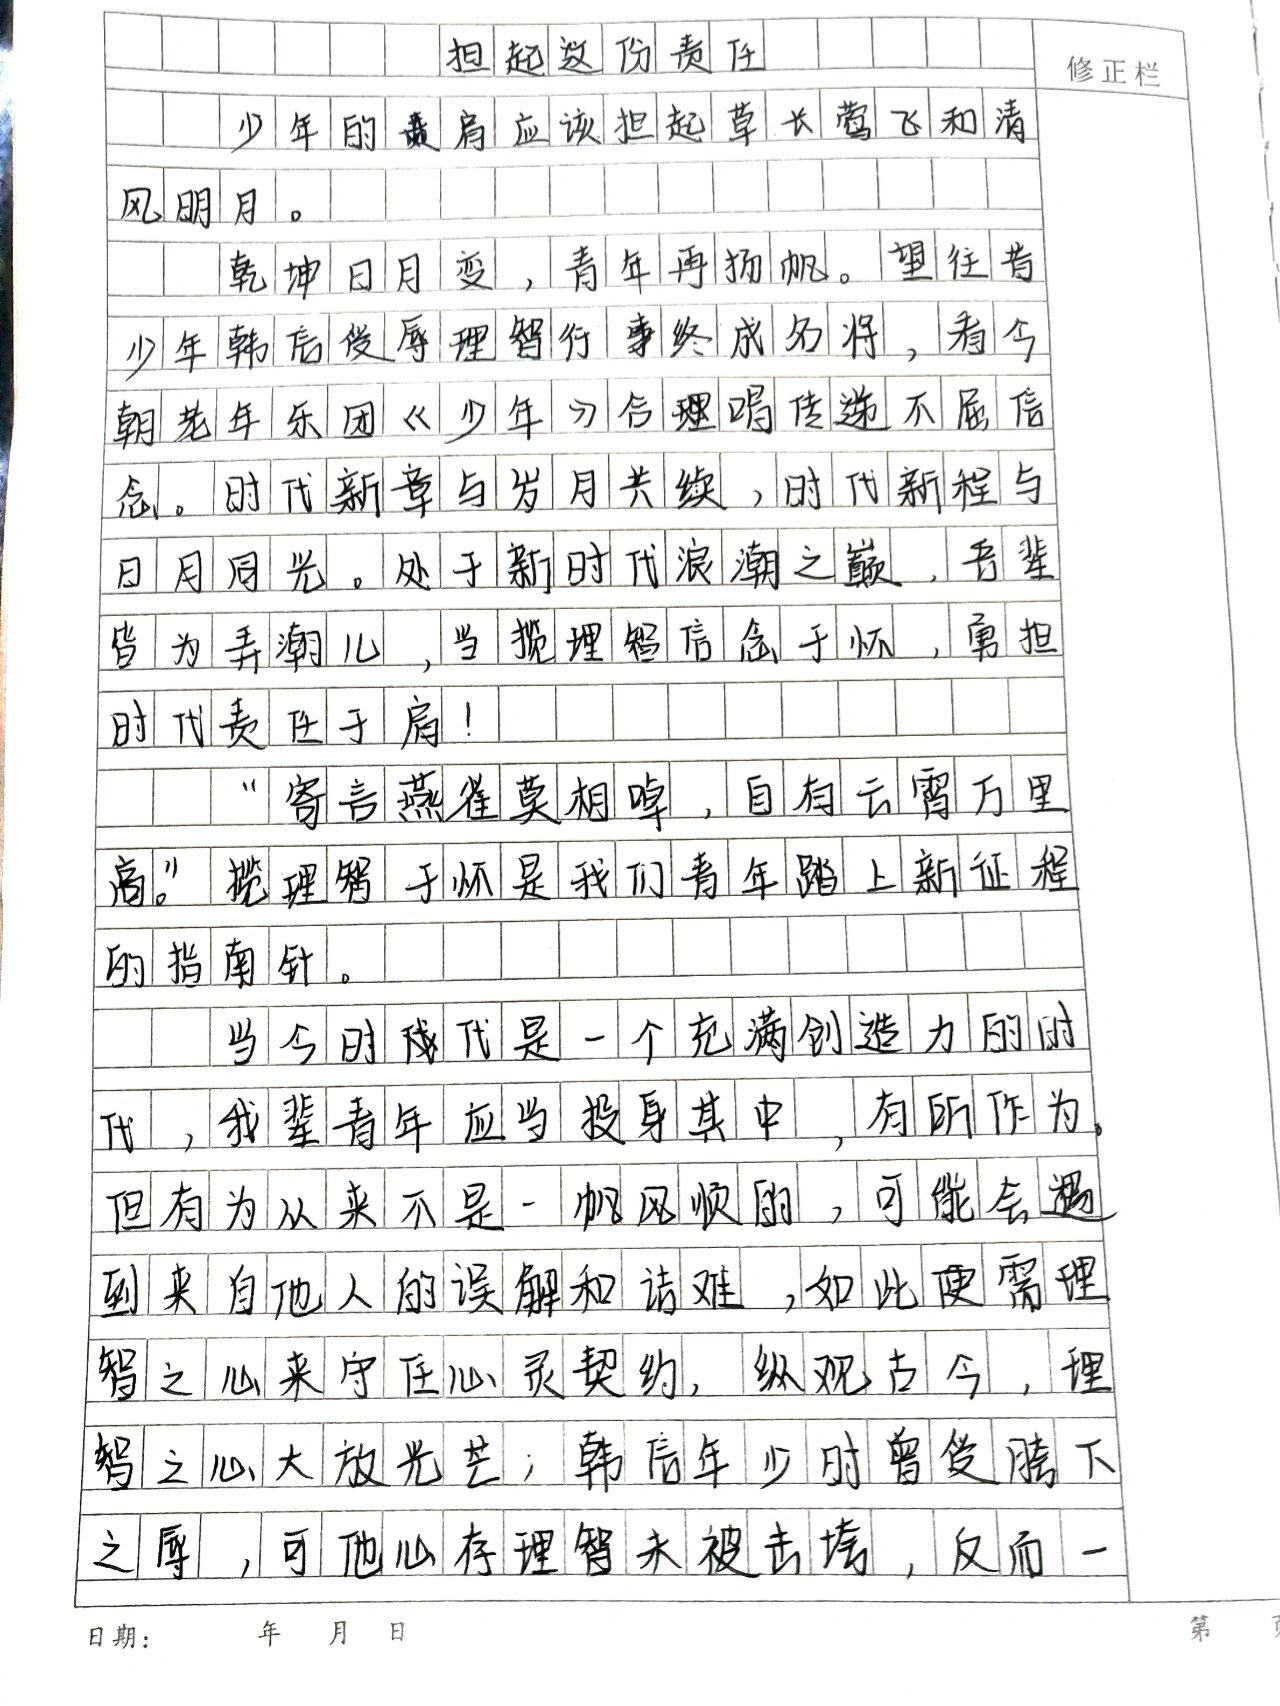 担起这份责任
修正栏
少年的肩应该担起草长莺飞和清
风明月。
乾坤日月变，青年再扬帆。望往昔
少年韩信受辱理智行事终成名将，看今
朝老年乐团《少年》合理唱传递不屈信
念。时代新章与岁月共续，时代新程与
日月同光。处于新时代浪潮之巅，吾辈
皆为弄潮儿，当揽理智信念于怀，勇担
时代责任于肩！
“寄言燕雀莫相啅，自有云霄万里
高。”揽理智于怀是我们青年踏上新征程
的指南针。
当今时代是一个充满创造力的时
代，我辈青年应当投身其中，有所作为。
但有为从来不是一帆风顺的，可能会遇
到来自他人的误解和诘难，如此便需理
智之心来守住心灵契约，纵观古今，理
智之心大放光芒；韩信年少时曾受胯下
之辱，可他心存理智未被击垮，反而一
日期： 年 月 日
第